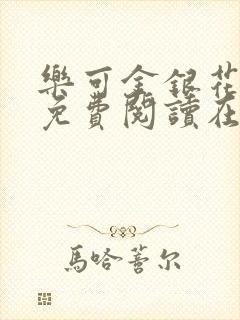 樂可金銀花
免費閱讀在
馬哈蓍尔